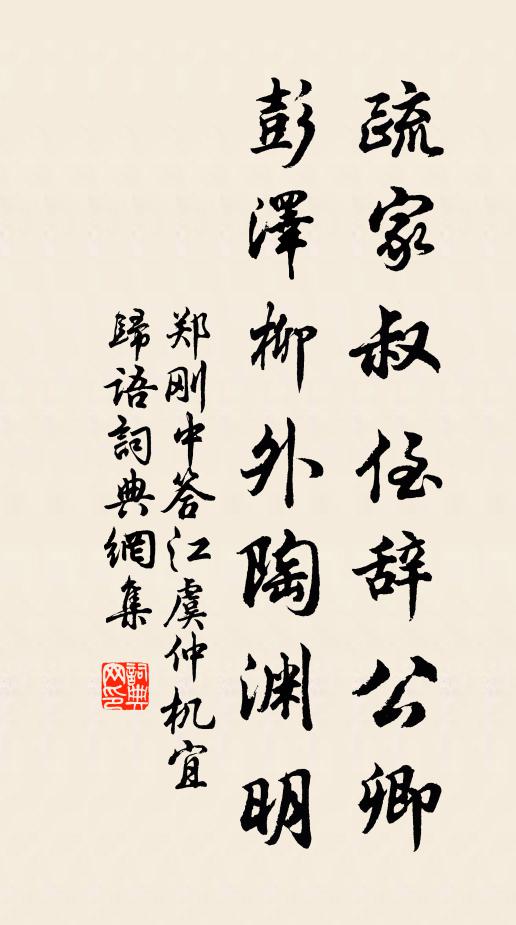 疏家叔侄辞公卿
彭澤柳外陶渊明
郑刚中答江虞仲机宜
歸语詞典網集
詞典网印